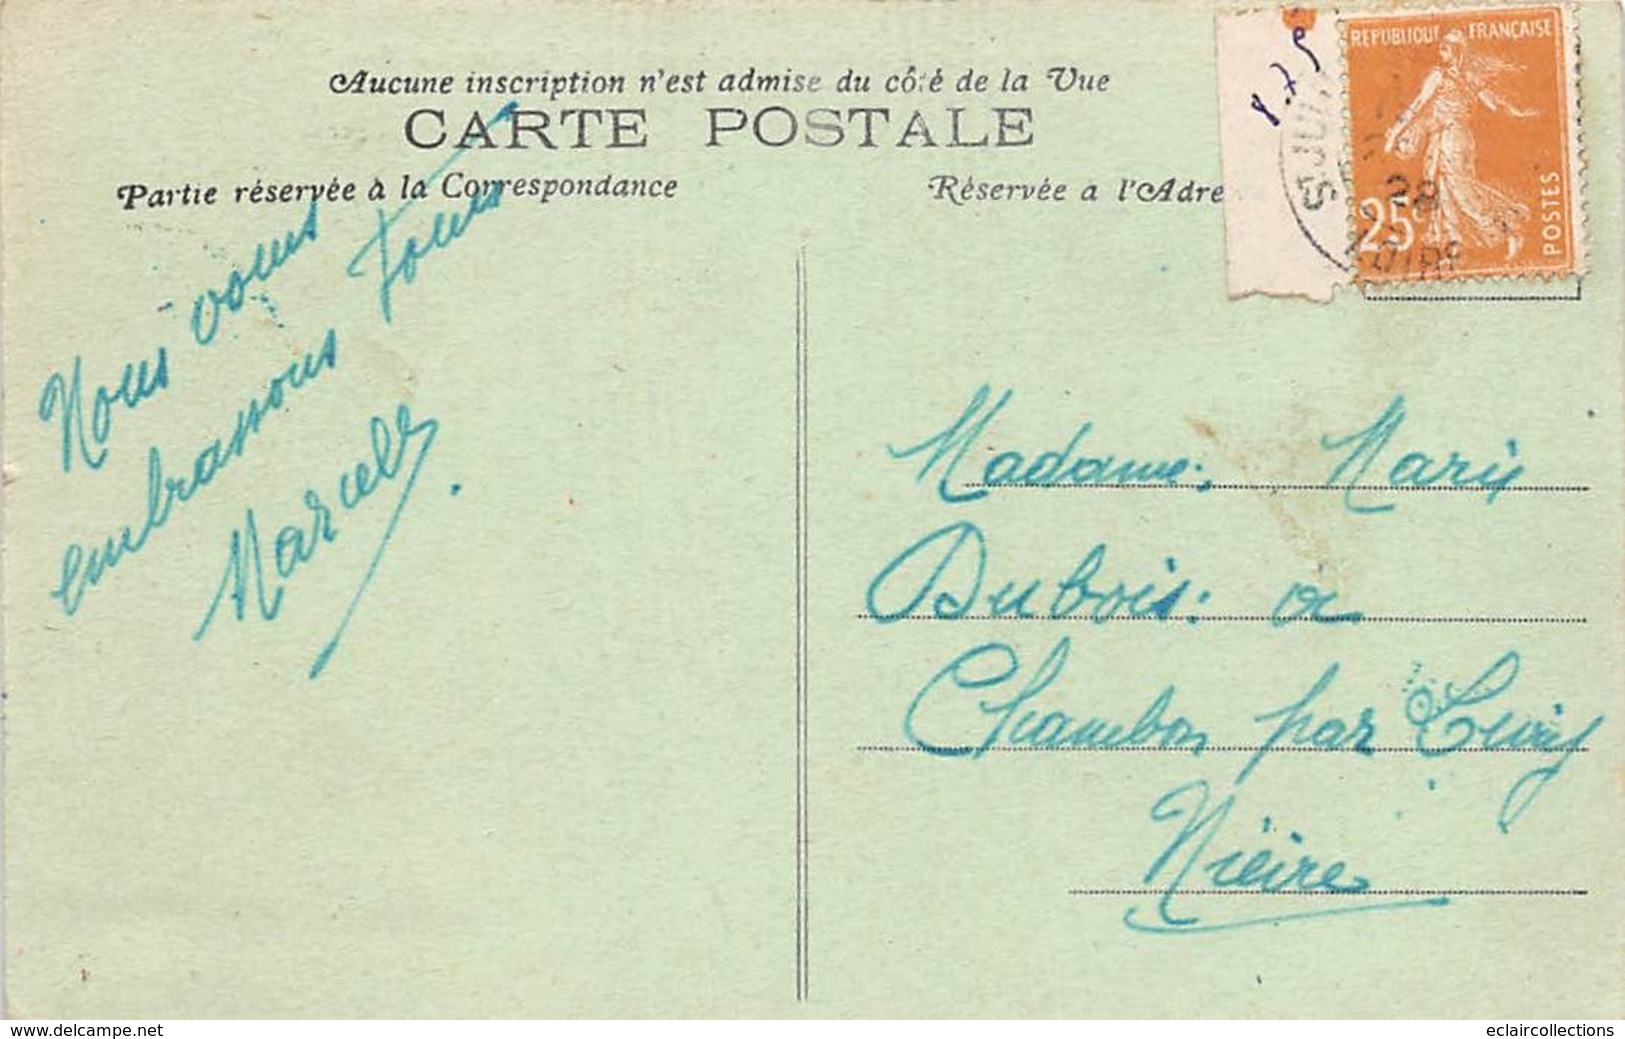 Aucune inscription n'est admise du côté de la Vue
CARTE POSTALE
Partie réservée à la Correspondance
Réservée a l'Adre
REPUBLIQUE FRANÇAISE
25c
POSTES
28
LOIRE
Nous vous
embrassons Tous
Marcel
Madame. Marie
Dubois. a
Chambon par
Nièvre
www.delcampe.net
eclaircollections